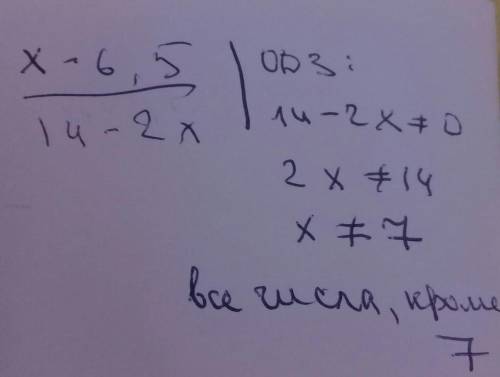 x - 6,5
14 - 2x
ОДЗ:
14 - 2x ≠ 0
2x ≠ 14
x ≠ 7
все числа, кроме
7